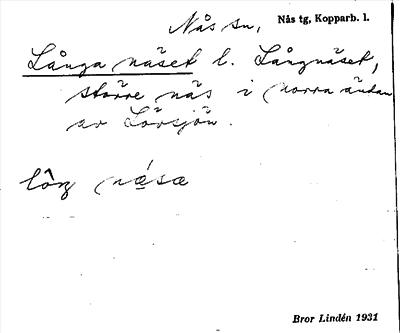 Nås sn, Nås tg, Kopparb. l.
Långa näset l. Långnäset,
större näs i norra ändan
av Lövsjön.
lôŋ næsæ
Bror Lindén 1931